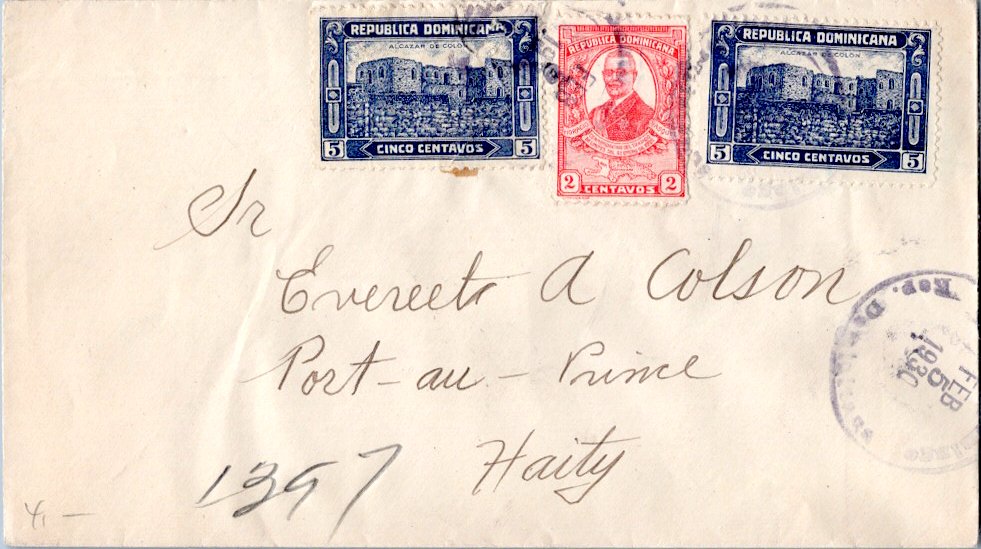 REPUBLICA DOMINICANA
ALCAZAR DE COLON
5 CINCO CENTAVOS 5
REPUBLICA DOMINICANA
CORREOS
2 CENTAVOS 2
REPUBLICA DOMINICANA
ALCAZAR DE COLON
5 CINCO CENTAVOS 5
Sr
Evereeta A Colson
Port-au-Prince
Haity
1397
Rep.
FEB
5
1930